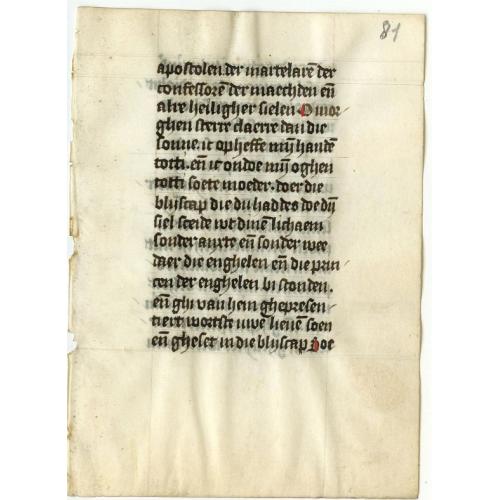 81
apostolen der martelarē der
confessorē der maechden eñ
alre heiligher sielen O mor
ghen sterre claerre dan die
sonne. ic opheffe mijn handē
totti. eñ ic ondoe mijn oghen
totti soete moeder. doer die
blijscap die du haddes doe dijn
siel sceide wt dinē lichaem
sonder anxte eñ sonder wee
daer die enghelen eñ die prin
cen der enghelen bi stonden.
eñ ghi van hem ghepresen
teert wortste uwē lieuē soen
eñ gheset in die blijscap Doe